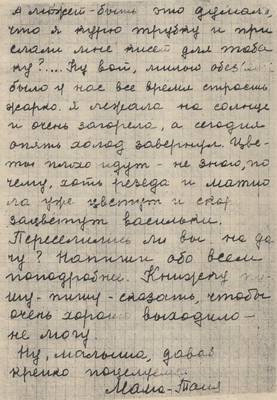 А может-быть это думал,
что я курю трубку и при
слали мне кисет для таба
ку?.... Ну вот, милый
было у нас все время страсть
жарко. Я лежала на солнце
и очень загорела, а сегодня
опять холод завернул. Цве-
ты плохо идут - не знаю, по
чему, хоть резеда и маттио
ла уже цветут и скор
зацветут васильки.
Переселились ли вы на да
чу? Напиши обо всем
поподробней. Книжку
шу-пишу-сказать, чтобы
очень хорошо выходило-
не могу.
Ну, малыша, давай
крепко поцелуемся
Мама-Таня